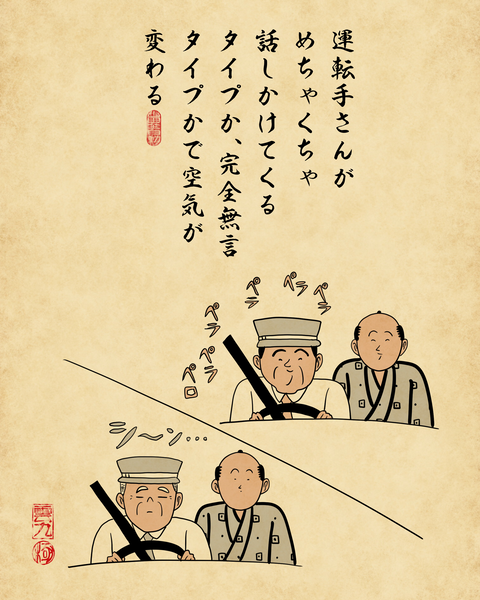 運転手さんが
めちゃくちゃ
話しかけてくる
タイプか、完全無言
タイプかで空気が
変わる
ペラ
ペラ
ペラ
ペラ
ペラ
ペロ
シ〜ン…